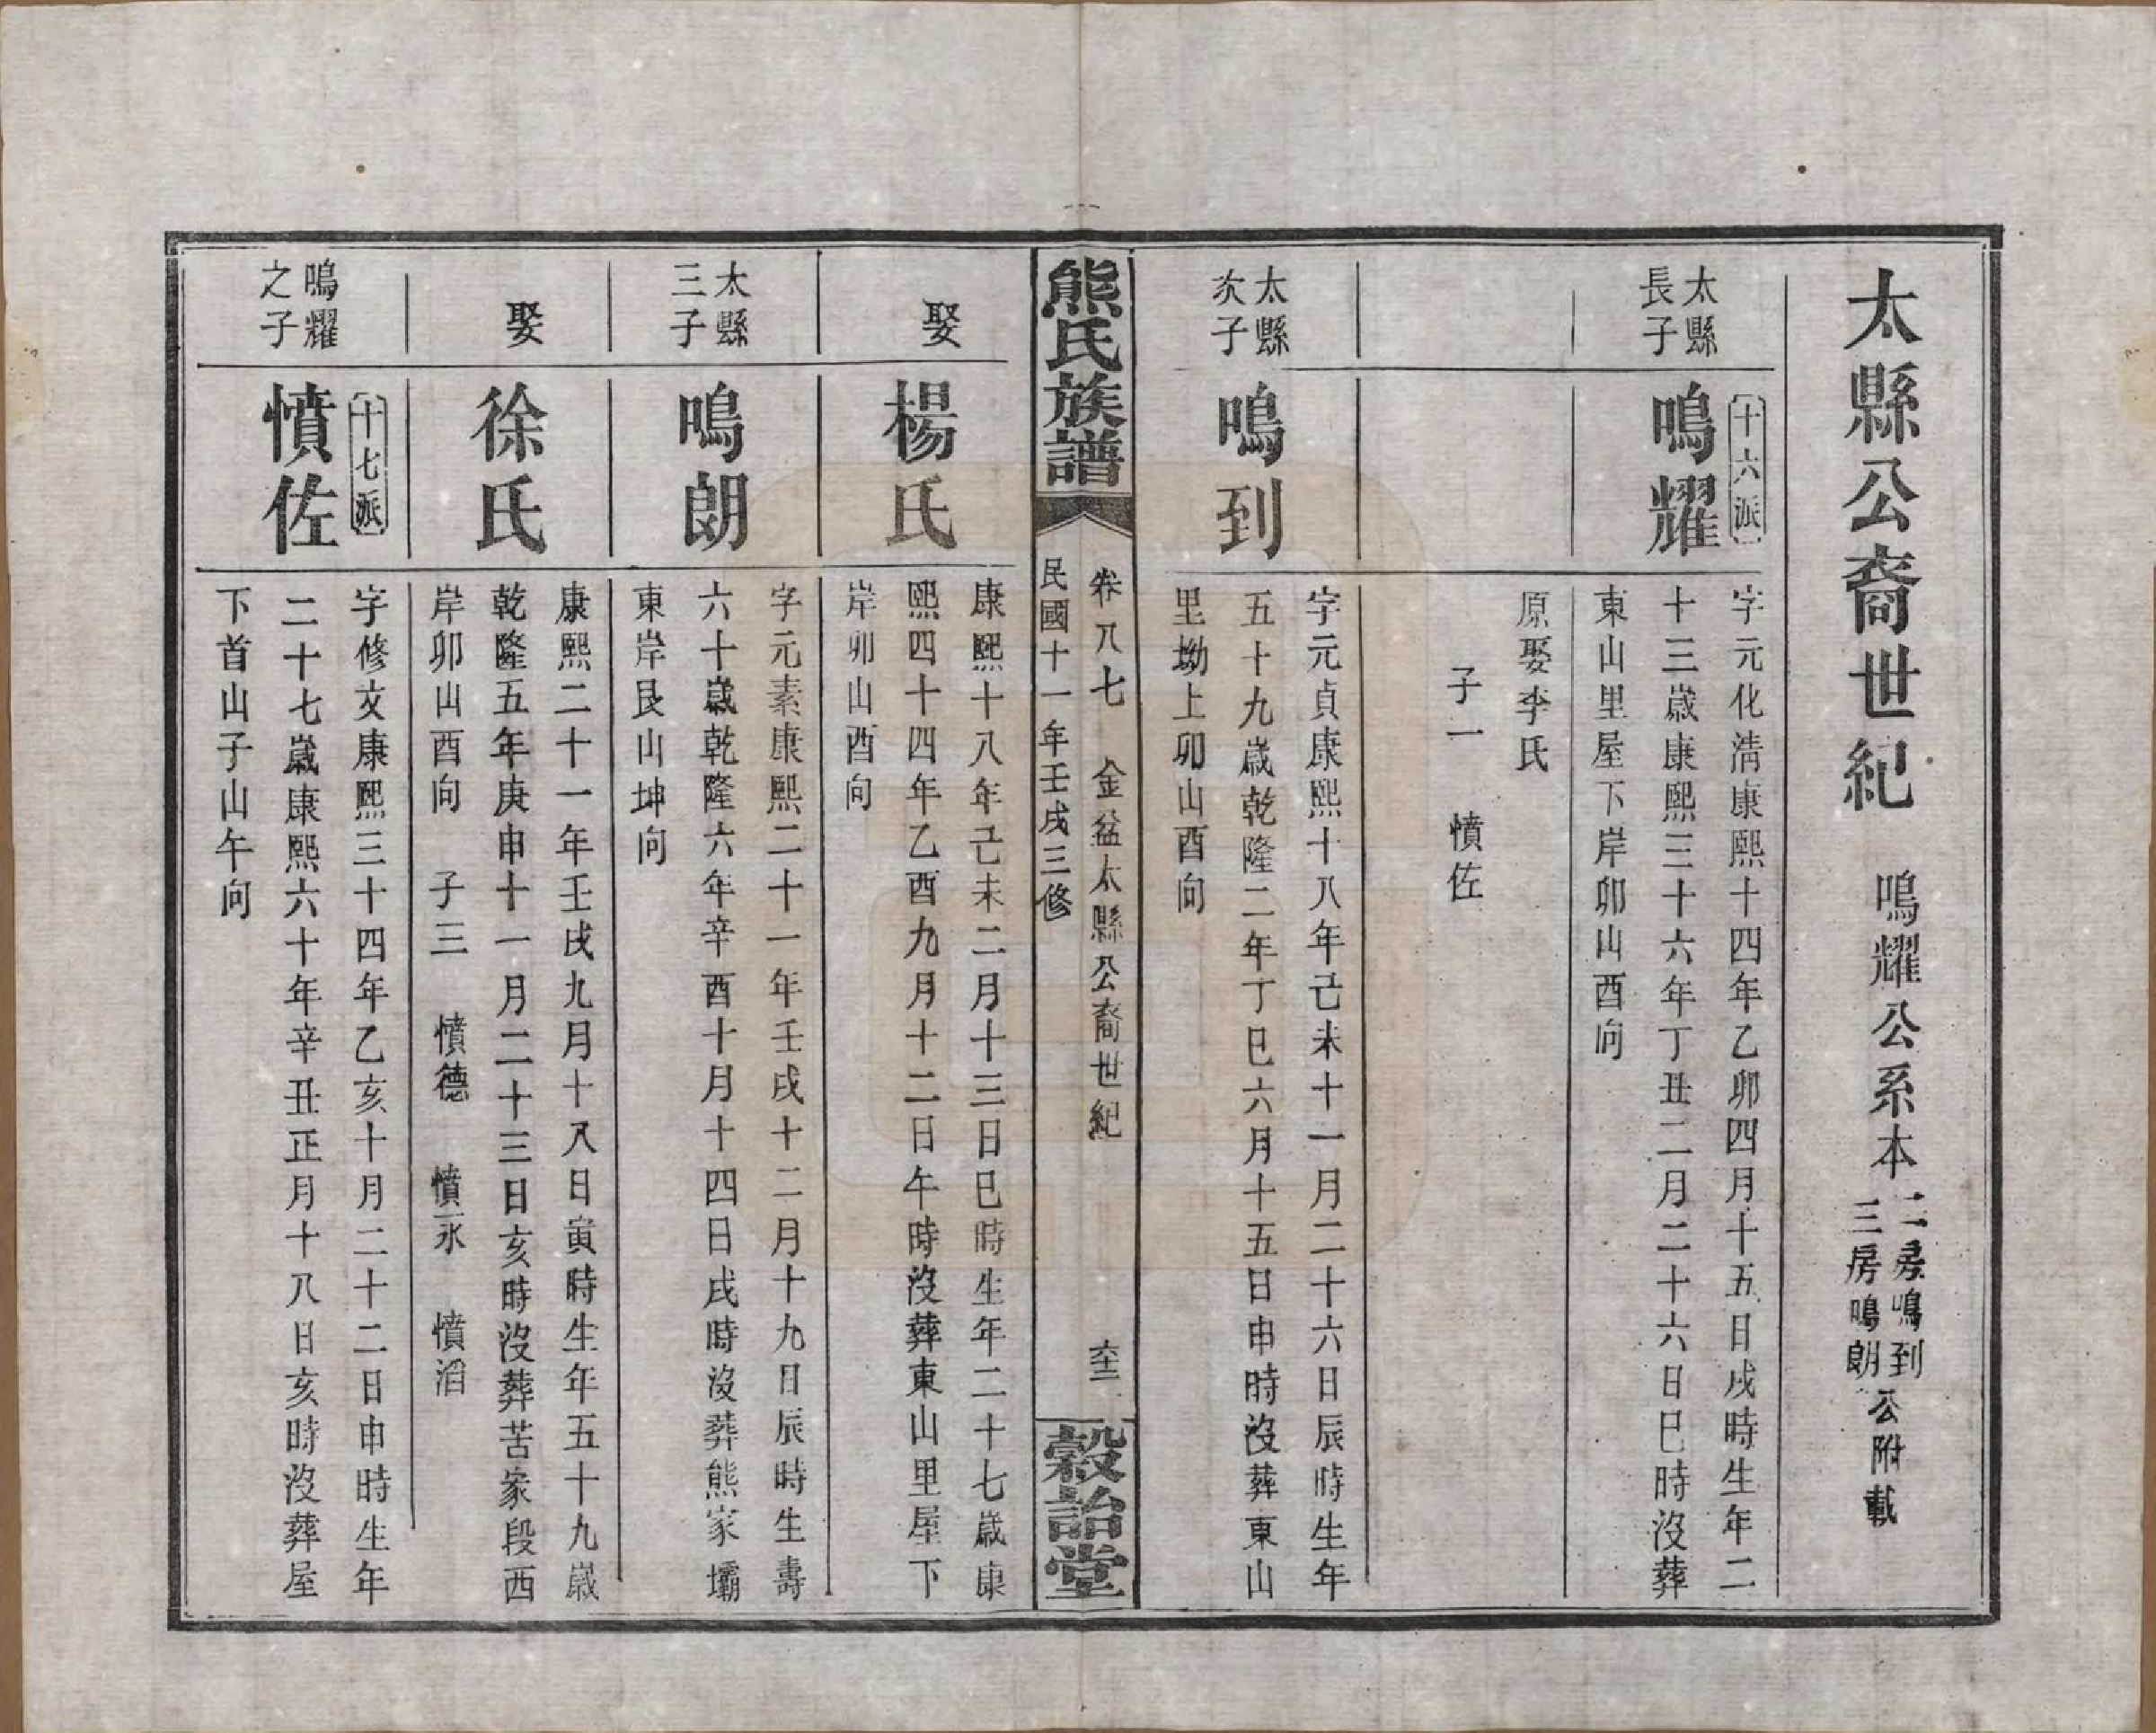 太縣公裔世紀 鳴耀公系本二房鳴到三房鳴朗公附載
太縣
長子
十六派
鳴耀
字元化清康熙十四年乙卯四月十五日戌時生年二
十三歲康熙三十六年丁丑二月二十六日巳時沒葬
東山里屋下岸卯山酉向
原娶李氏
子一 憤佐
太縣
次子
鳴到
字元貞康熙十八年己未十一月二十六日辰時生年
五十九歲乾隆二年丁巳六月十五日申時沒葬東山
里坳上卯山酉向
熊氏族譜
卷八七 金盆太縣公裔世紀
民國十一年壬戌三修
穀詒堂
娶
楊氏
康熙十八年己未二月十三日巳時生年二十七歲康
熙四十四年乙酉九月十二日午時沒葬東山里屋下
岸卯山酉向
太縣
三子
鳴朗
字元素康熙二十一年壬戌十二月十九日辰時生壽
六十歲乾隆六年辛酉十月十四日戌時沒葬熊家壩
東岸艮山坤向
娶
徐氏
康熙二十一年壬戌九月十八日寅時生年五十九歲
乾隆五年庚申十一月二十三日亥時沒葬苦家段西
岸卯山酉向 子三 憤德 憤永 憤滔
鳴耀
之子
十七派
憤佐
字修文康熙三十四年乙亥十月二十二日申時生年
二十七歲康熙六十年辛丑正月十八日亥時沒葬屋
下首山子山午向